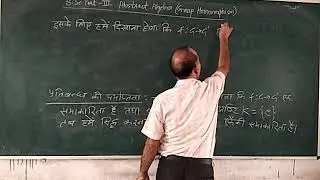 B.Sc Part-III Abstract Algebra (Group Homomorphism)
इसके लिए हमें दिखाना होगा कि f: G→G'
प्रतिबन्ध की पर्याप्तता :- कि f: G→G' एक
समाकारिता है तथा K = {e}
तब हमें सिद्ध करना समाकारिता है।